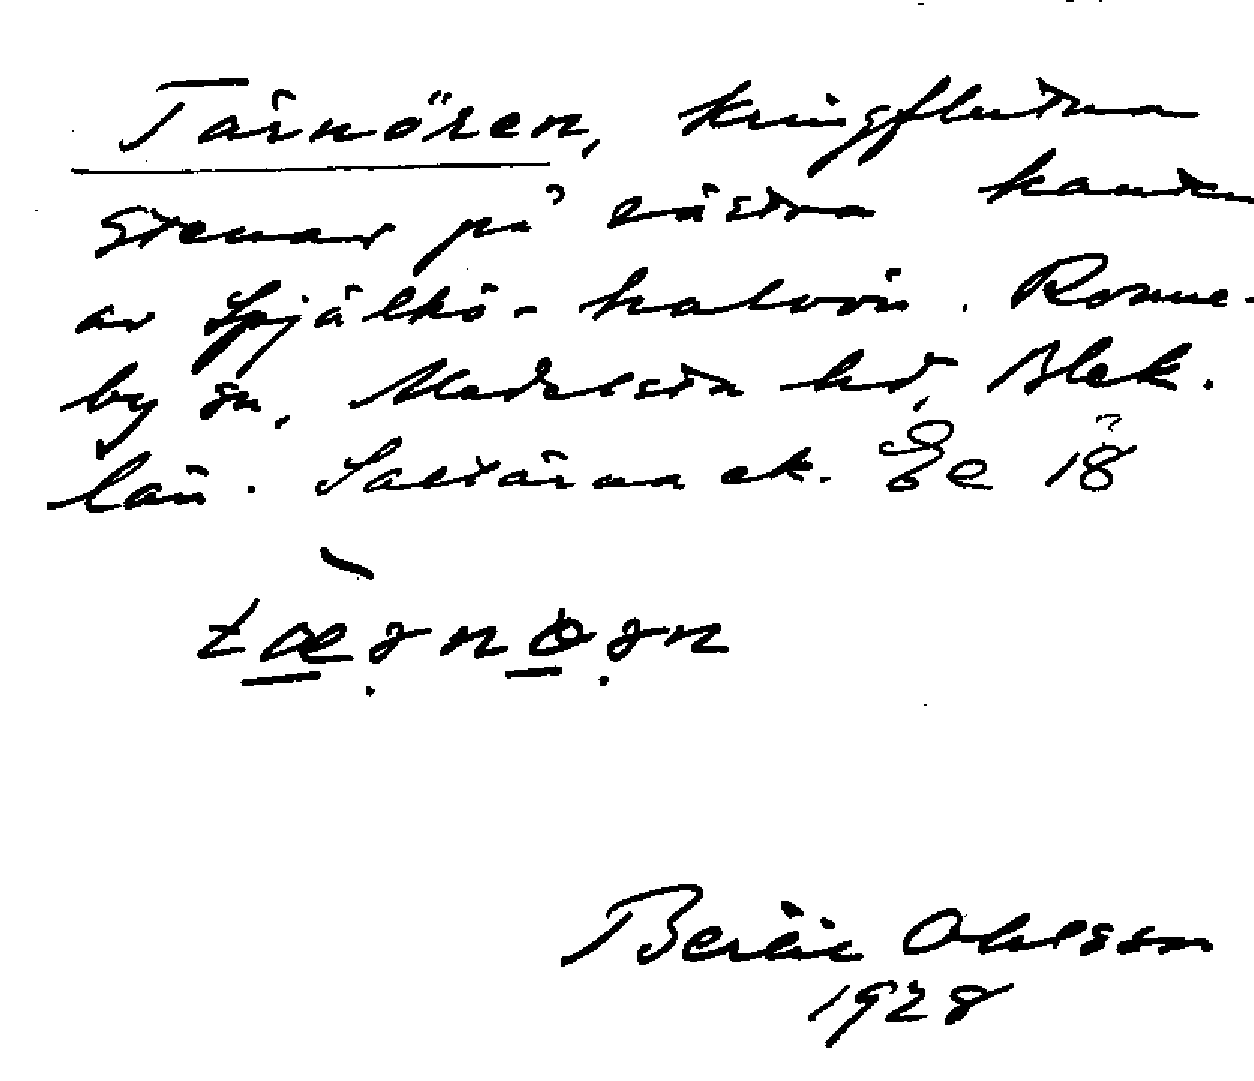 Tärnören, kringflutna
stenar på västra kanten
av Spjälkö-halvön. Ronne-
by sn, Medelsta hd, Blek.
län. Saltärna ek. Ee 18
tærnörn
Bertil Ohlsson
1928